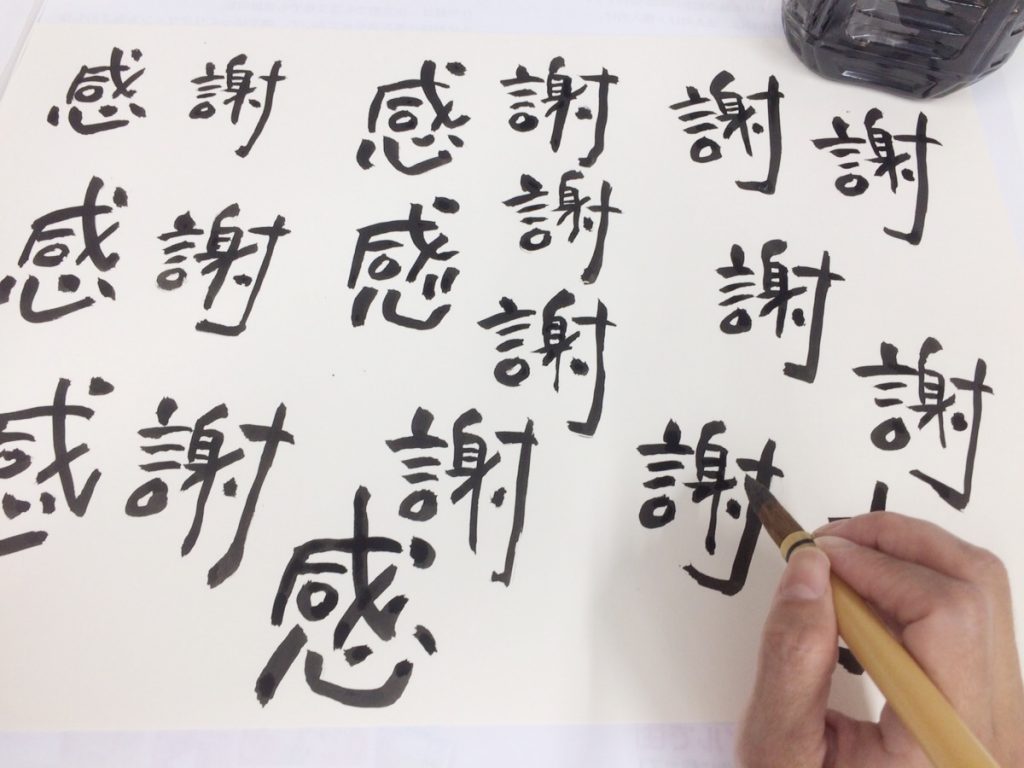 感謝 感謝 謝 謝
感謝 感謝 謝
謝 謝
感謝 謝 謝
感